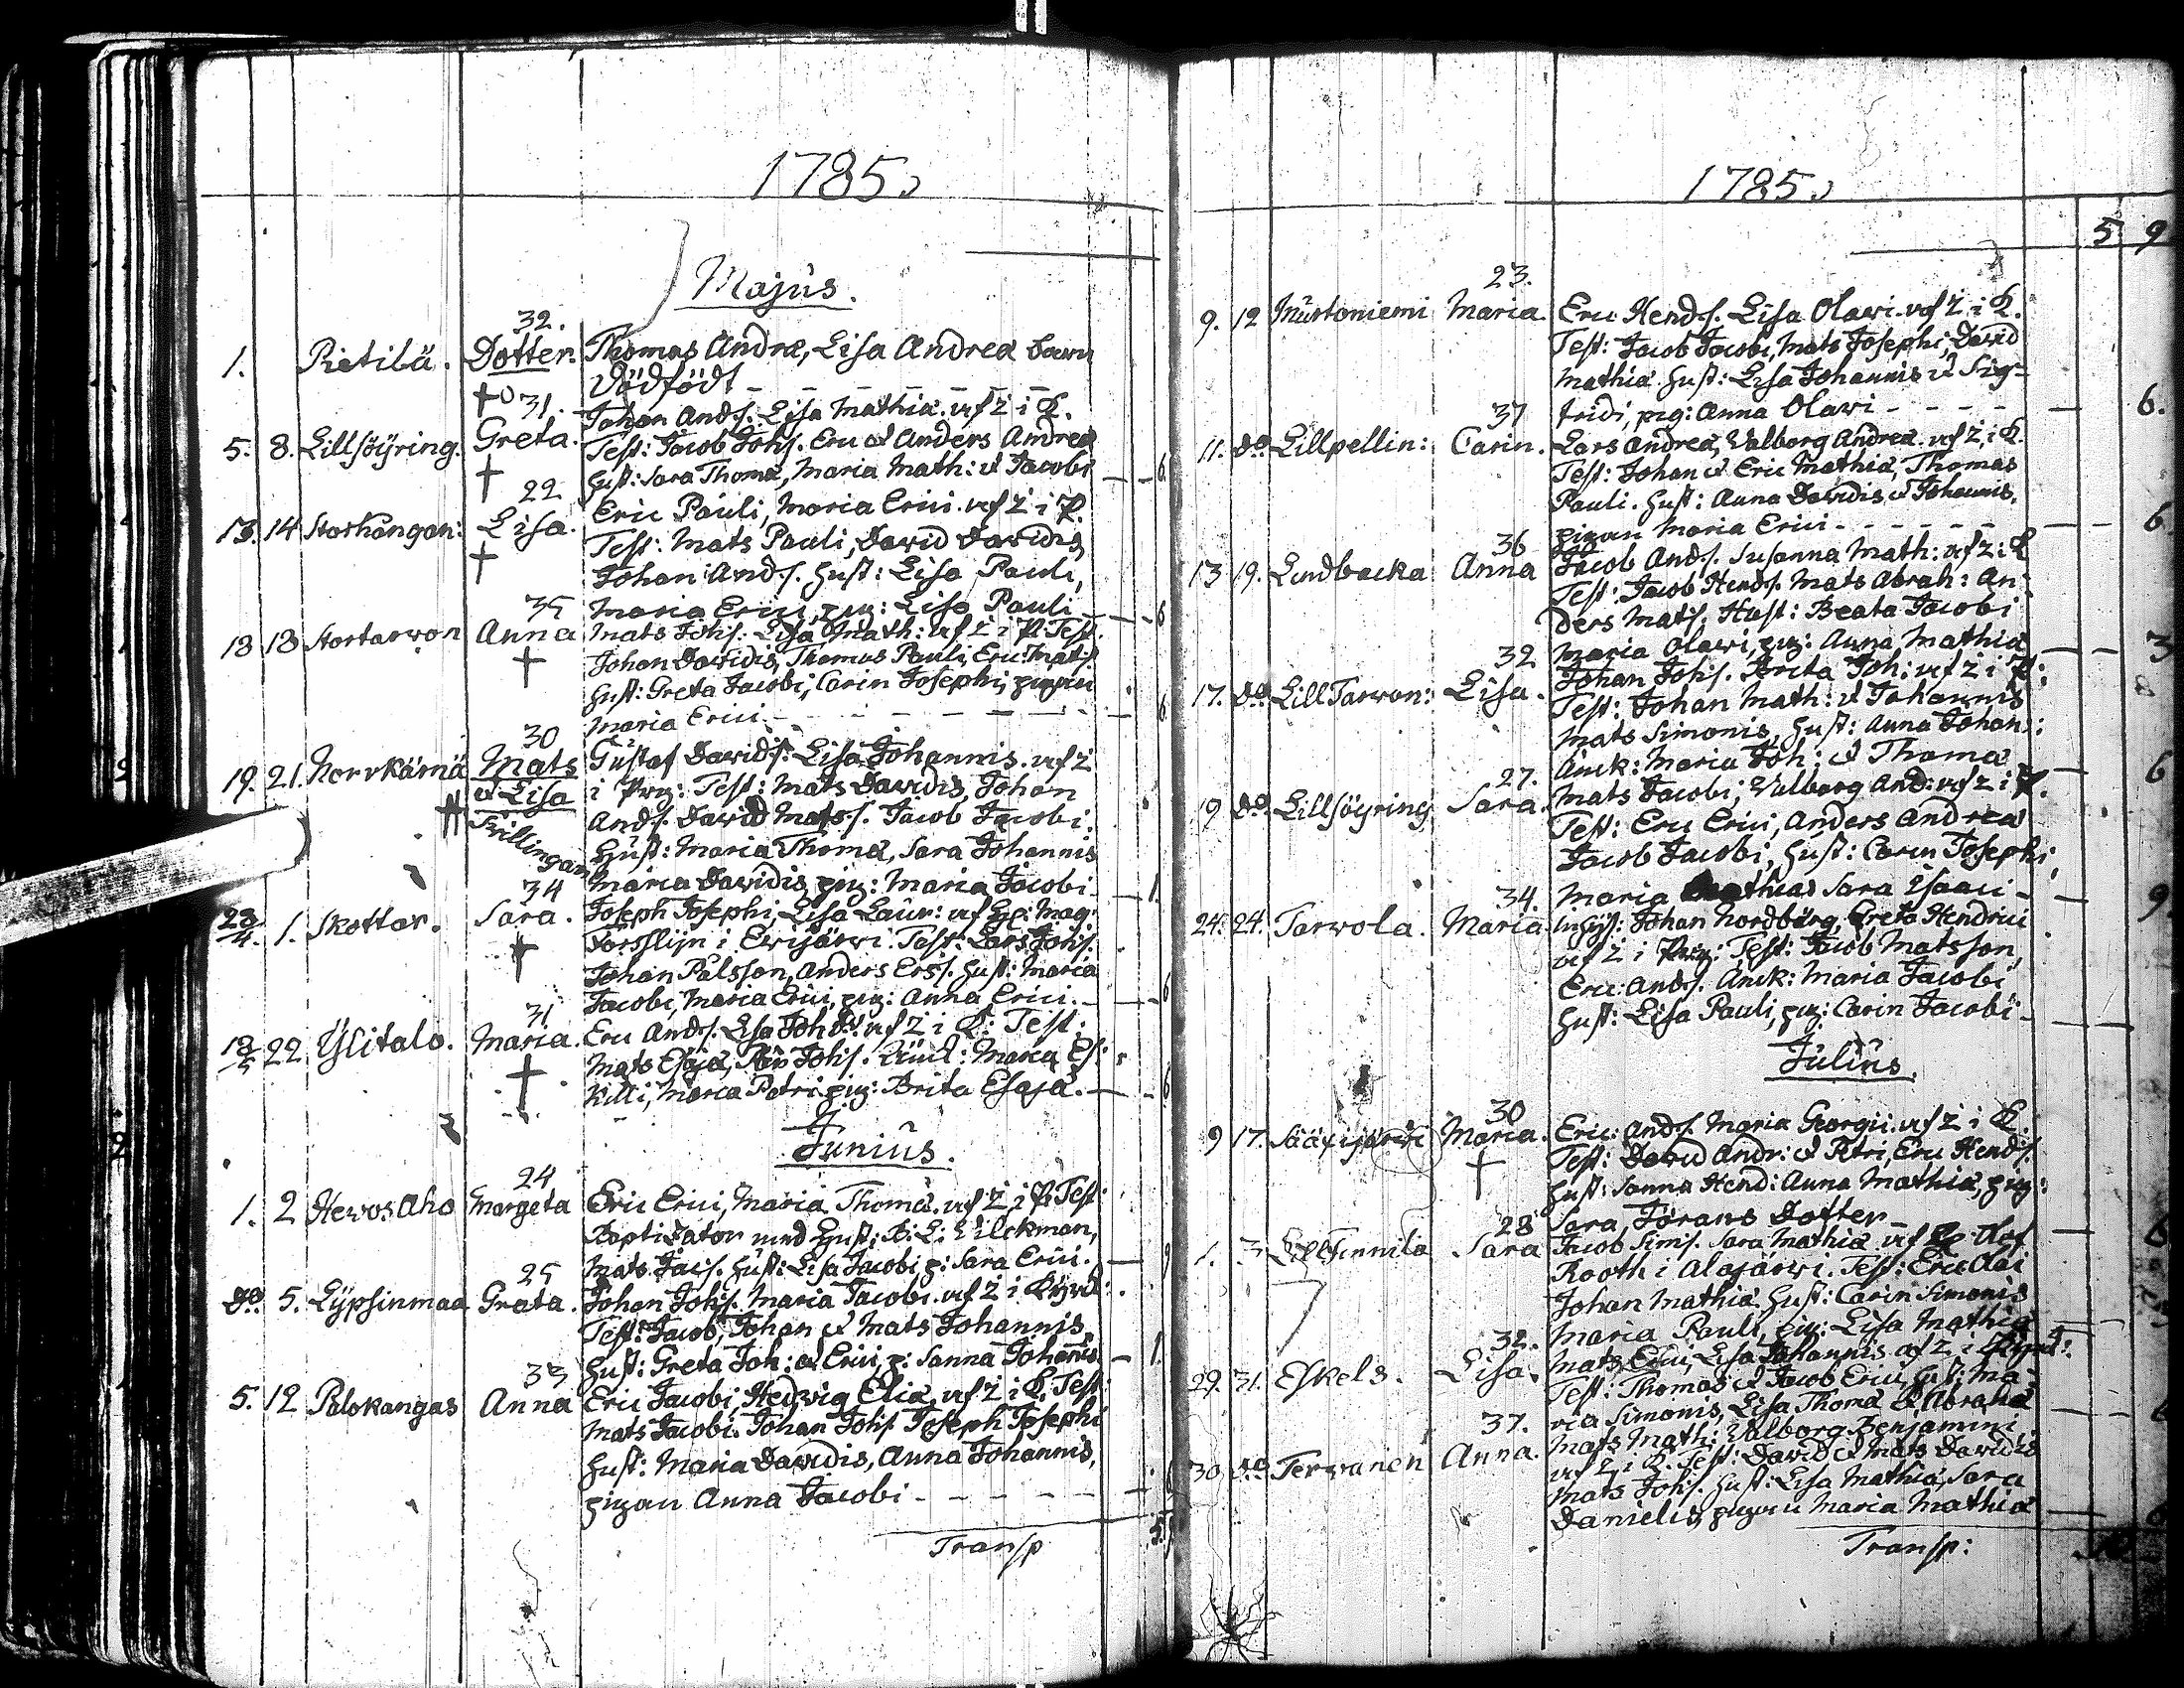 1785
Majus.
32.
1. Pietilä. Dotter. Thomas Andræ, Lisa Andreæ barn
dödfödt
31.
Johan Ands. Lisa Mathiæ. uf Z i K.
5. 8. Lillsöyring. Greta. Test: Jacob Johs. Eric & Anders Andreæ
hust: Sara Thomæ, Maria Math: & Jacobi 6
22
Eric Pauli, Maria Erici. uf Z i P.
13. 14 Storkangan: Lisa. Test: Mats Pauli, David Davidis,
Johan Ands. hust: Lisa Pauli,
Maria Erici, pig: Lisa Pauli 6
35
13 13 Stortarvon Anna Mats Johs. Lisa Math: uf Z i P. Test.
Johan Davidis, Thomas Pauli, Eric Mats.
hust: Greta Jacobi, Carin Josephi, pigan
Maria Erici 6
30
Gustaf Davids: Lisa Johannis. uf Z
19. 21. Norrkärnä Mats & Lisa i Prg: Test: Mats Davidis, Johan
Tvillingar
Ands. David Mats s. Jacob Jacobi.
Hust: Maria Thomæ, Sara Johannis
Maria Davidis, pig: Maria Jacobi 1
34
23/4. 1. Skottar. Sara. Joseph Josephi, Lisa Laur: uf Hr: Mag:
Forsslijn i Evijärvi. Test: Lars Johs.
Johan Pålsson, Anders Ers s. hust: Maria
Jacobi, Maria Erici, pig: Anna Erici. 6
31
22 Ylitalo. Maria. Eric Ands. Lisa Johs. uf Z i K: Test:
Mats Esajæ, Johs. Maria Es:
killi, Maria Petri, pig: Brita Esajæ. 6
Junius.
24
1. 2 Hevosaho Margeta Eric Erici, Maria Thomæ. uf Z i P. Test:
Baptizator med Hust: B: L: Wilckman,
Mats Jacs. hust: Lisa Jacobi p: Sara Erici.
25
do 5. Lypsinmaa Greta. Johan Johs. Maria Jacobi. uf Z i Kyrck:
Test: Jacob, Johan & Mats Johannis,
hust: Greta Joh: & Erici, p: Sanna Johannis. 1.
33
5. 12 Palokangas Anna Eric Jacobi, Hedvig Eliæ. uf Z i K. Test:
Mats Jacobi. Johan Johs. Joseph Josephi
hust: Maria Davidis, Anna Johannis,
pigan Anna Jacobi 6
Transp
1785
5 9
23.
9. 12 Murtoniemi Maria. Eric Hends. Lisa Olavi. uf Z i K.
Test: Jacob Jacobi, Mats Josephi, David
Mathiæ. hust: Lisa Johannis & Sig=
fridi, pig: Anna Olavi 6.
37
11. do Lillpellin: Carin. Lars Andreæ, Valborg Andreæ. uf Z i K.
Test: Johan & Eric Mathiæ, Thomas
Pauli. hust: Anna Davidis & Johannis,
pigan Maria Erici 6
36
13 19. Lindbacka Anna Jacob Ands. Susanna Math: uf Z i K
Test: Jacob Hends. Mats Abrah: An-
ders Mats: Hust: Beata Jacobi
Maria Olavi, pig: Anna Mathiæ 3
32
17. do Lill Tarvon: Lisa. Johan Johs. Brita Joh: uf Z i P:
Test: Johan Math: & Johannis
Mats Simonis, hust: Anna Johan:
Änck: Maria Joh: & Thomæ 6
27.
19 do Lillsöyring Sara. Mats Jacobi, Valborg And: uf Z i P.
Test: Eric Erici, Anders Andreæ
Jacob Jacobi, hust: Carin Josephi,
Maria Mathias Sara Isaaci 9.
34.
24. 24. Tarvola. Maria. Johan Nordberg, Greta Hendrici
uf Z i Prg: Test: Jacob Matsson,
Eric Ands. Änck: Maria Jacobi
hust: Lisa Pauli, pig: Carin Jacobi
Julius.
30
9 17. Sääxijärvi Maria. Eric Ands. Maria Georgii. uf Z i K.
Test: David Andr: & Petri, Eric Hends.
hust: Sanna Hend: Anna Mathiæ, pig:
Sara Görans Dotter 6
28
1. 3 Sara Jacob Sims. Sara Mathiæ uf Hr Olof
Rooth i Alajärvi. Test: Eric
Johan Mathiæ. hust: Carin Simonis
Maria Pauli, pig: Lisa Mathiæ
32.
29. 31. Eskels. Lisa. Mats Erici, Lisa Johannis uf Z i Kyrck:
Test: Thomas & Jacob Erici, hust: Ma-
ria Simonis, Lisa Thomæ & Abrahæ 6
37.
30 do Tervanen Anna. Mats Math: Valborg Benjamini
uf Z i K. Test: David & Mats Davidis
Mats Johs. hust: Lisa Mathiæ, Sara
Danielis, pigan Maria Mathiæ 6
Transp: